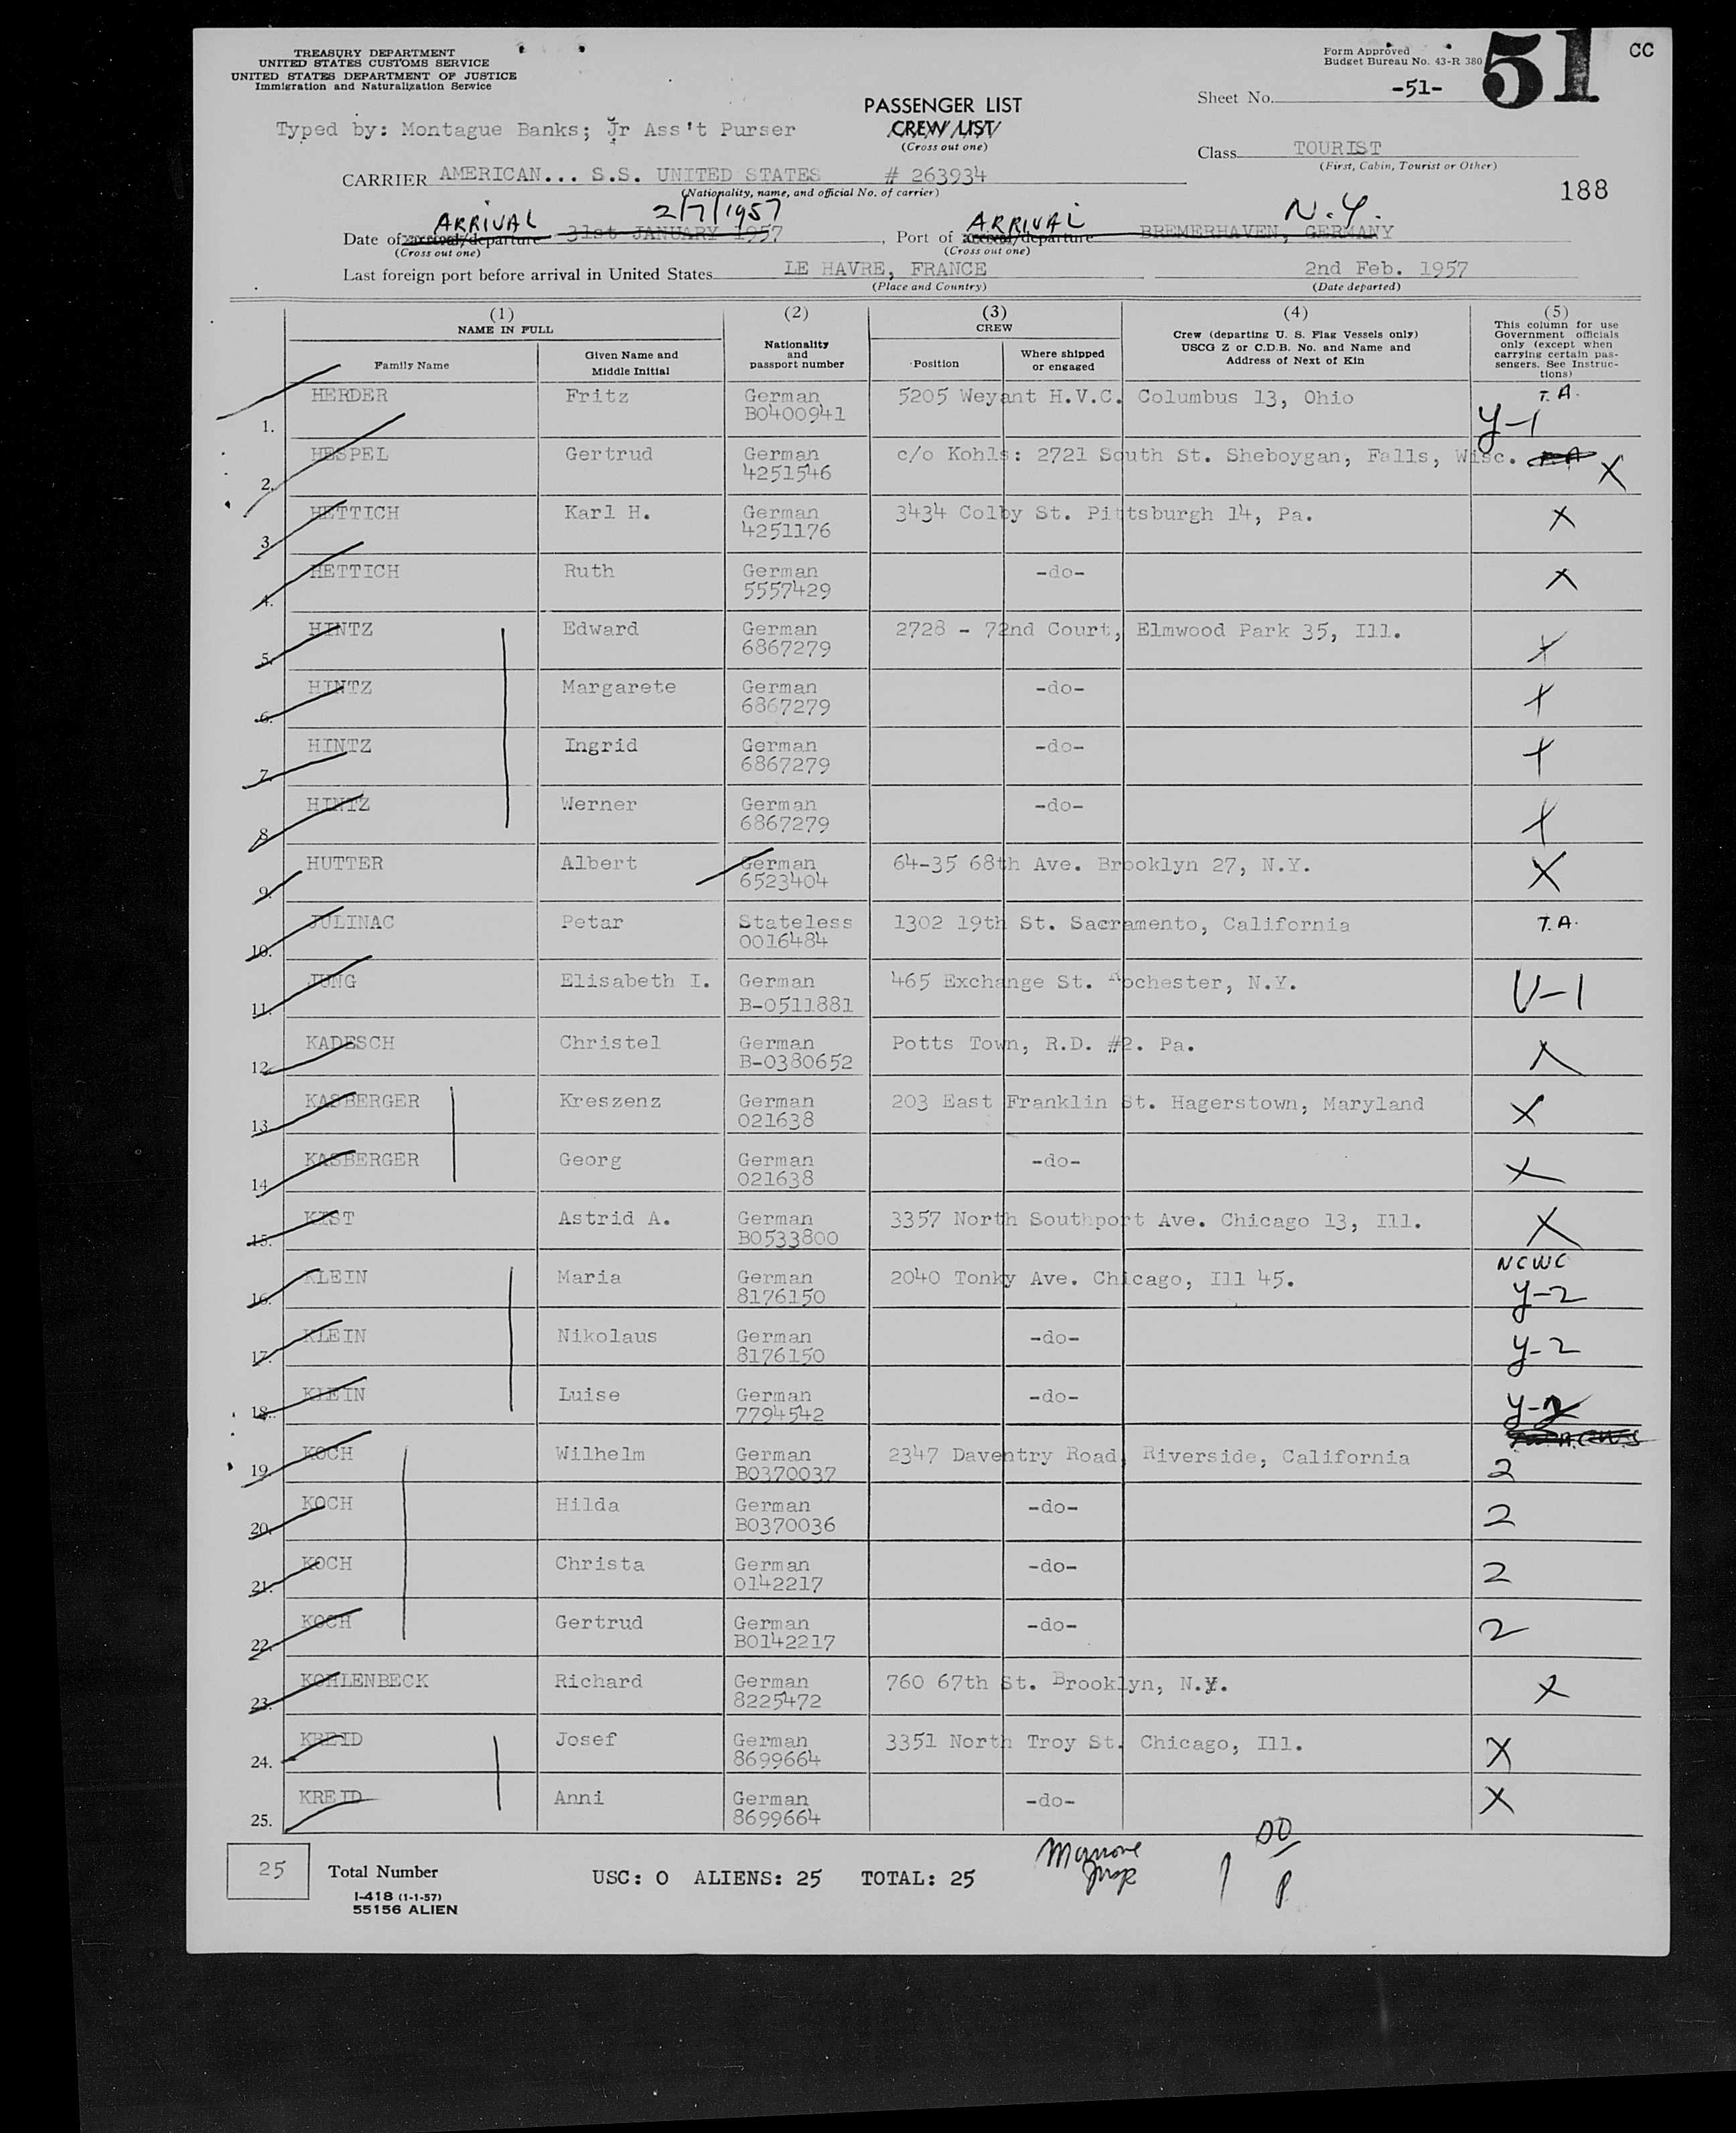 TREASURY DEPARTMENT
UNITED STATES CUSTOMS SERVICE
UNITED STATES DEPARTMENT OF JUSTICE
Immigration and Naturalization Service
Form Approved
Budget Bureau No. 43-R 380
51 CC
Sheet No. -51-
PASSENGER LIST
CREW LIST
(Cross out one)
Typed by: Montague Banks; Jr Ass't Purser
Class TOURIST
(First, Cabin, Tourist or Other)
CARRIER AMERICAN... S.S. UNITED STATES # 263934
(Nationality, name, and official No. of carrier)
188
ARRIVAL 2/7/1957 ARRIVAL N.Y.
Date of arrival/departure 31st JANUARY 1957, Port of arrival/departure BREMERHAVEN, GERMANY
(Cross out one) (Cross out one)
Last foreign port before arrival in United States LE HAVRE, FRANCE 2nd Feb. 1957
(Place and Country) (Date departed)
(1) NAME IN FULL
Family Name
Given Name and Middle Initial
(2) Nationality and passport number
(3) CREW
Position
Where shipped or engaged
(4) Crew (departing U. S. Flag Vessels only) USCG Z or C.D.B. No. and Name and Address of Next of Kin
(5) This column for use Government officials only (except when carrying certain passengers. See Instructions)
1. HERDER Fritz German B0400941 5205 Weyant H.V.C. Columbus 13, Ohio T.A. Y-1
2. HESPEL Gertrud German 4251546 c/o Kohls: 2721 South St. Sheboygan, Falls, Wisc. X
3. HETTICH Karl H. German 4251176 3434 Colby St. Pittsburgh 14, Pa. X
4. HETTICH Ruth German 5557429 -do- X
5. HINTZ Edward German 6867279 2728 - 72nd Court, Elmwood Park 35, Ill. X
6. HINTZ Margarete German 6867279 -do- X
7. HINTZ Ingrid German 6867279 -do- X
8. HINTZ Werner German 6867279 -do- X
9. HUTTER Albert German 6523404 64-35 68th Ave. Brooklyn 27, N.Y. X
10. JULINAC Petar Stateless 0016484 1302 19th St. Sacramento, California T.A.
11. JUNG Elisabeth I. German B-0511881 465 Exchange St. Rochester, N.Y. V-1
12. KADESCH Christel German B-0380652 Potts Town, R.D. #2. Pa. X
13. KASBERGER Kreszenz German 021638 203 East Franklin St. Hagerstown, Maryland X
14. KASBERGER Georg German 021638 -do- X
15. KIST Astrid A. German B0533800 3357 North Southport Ave. Chicago 13, Ill. X
16. KLEIN Maria German 8176150 2040 Tonky Ave. Chicago, Ill 45. NCWC Y-2
17. KLEIN Nikolaus German 8176150 -do- Y-2
18. KLEIN Luise German 7794542 -do- Y-2
19. KOCH Wilhelm German B0370037 2347 Daventry Road, Riverside, California 2
20. KOCH Hilda German B0370036 -do- 2
21. KOCH Christa German 0142217 -do- 2
22. KOCH Gertrud German B0142217 -do- 2
23. KOHLENBECK Richard German 8225472 760 67th St. Brooklyn, N.Y. X
24. KREID Josef German 8699664 3351 North Troy St. Chicago, Ill. X
25. KREID Anni German 8699664 -do- X
25 Total Number USC: 0 ALIENS: 25 TOTAL: 25
I-418 (1-1-57)
55156 ALIEN